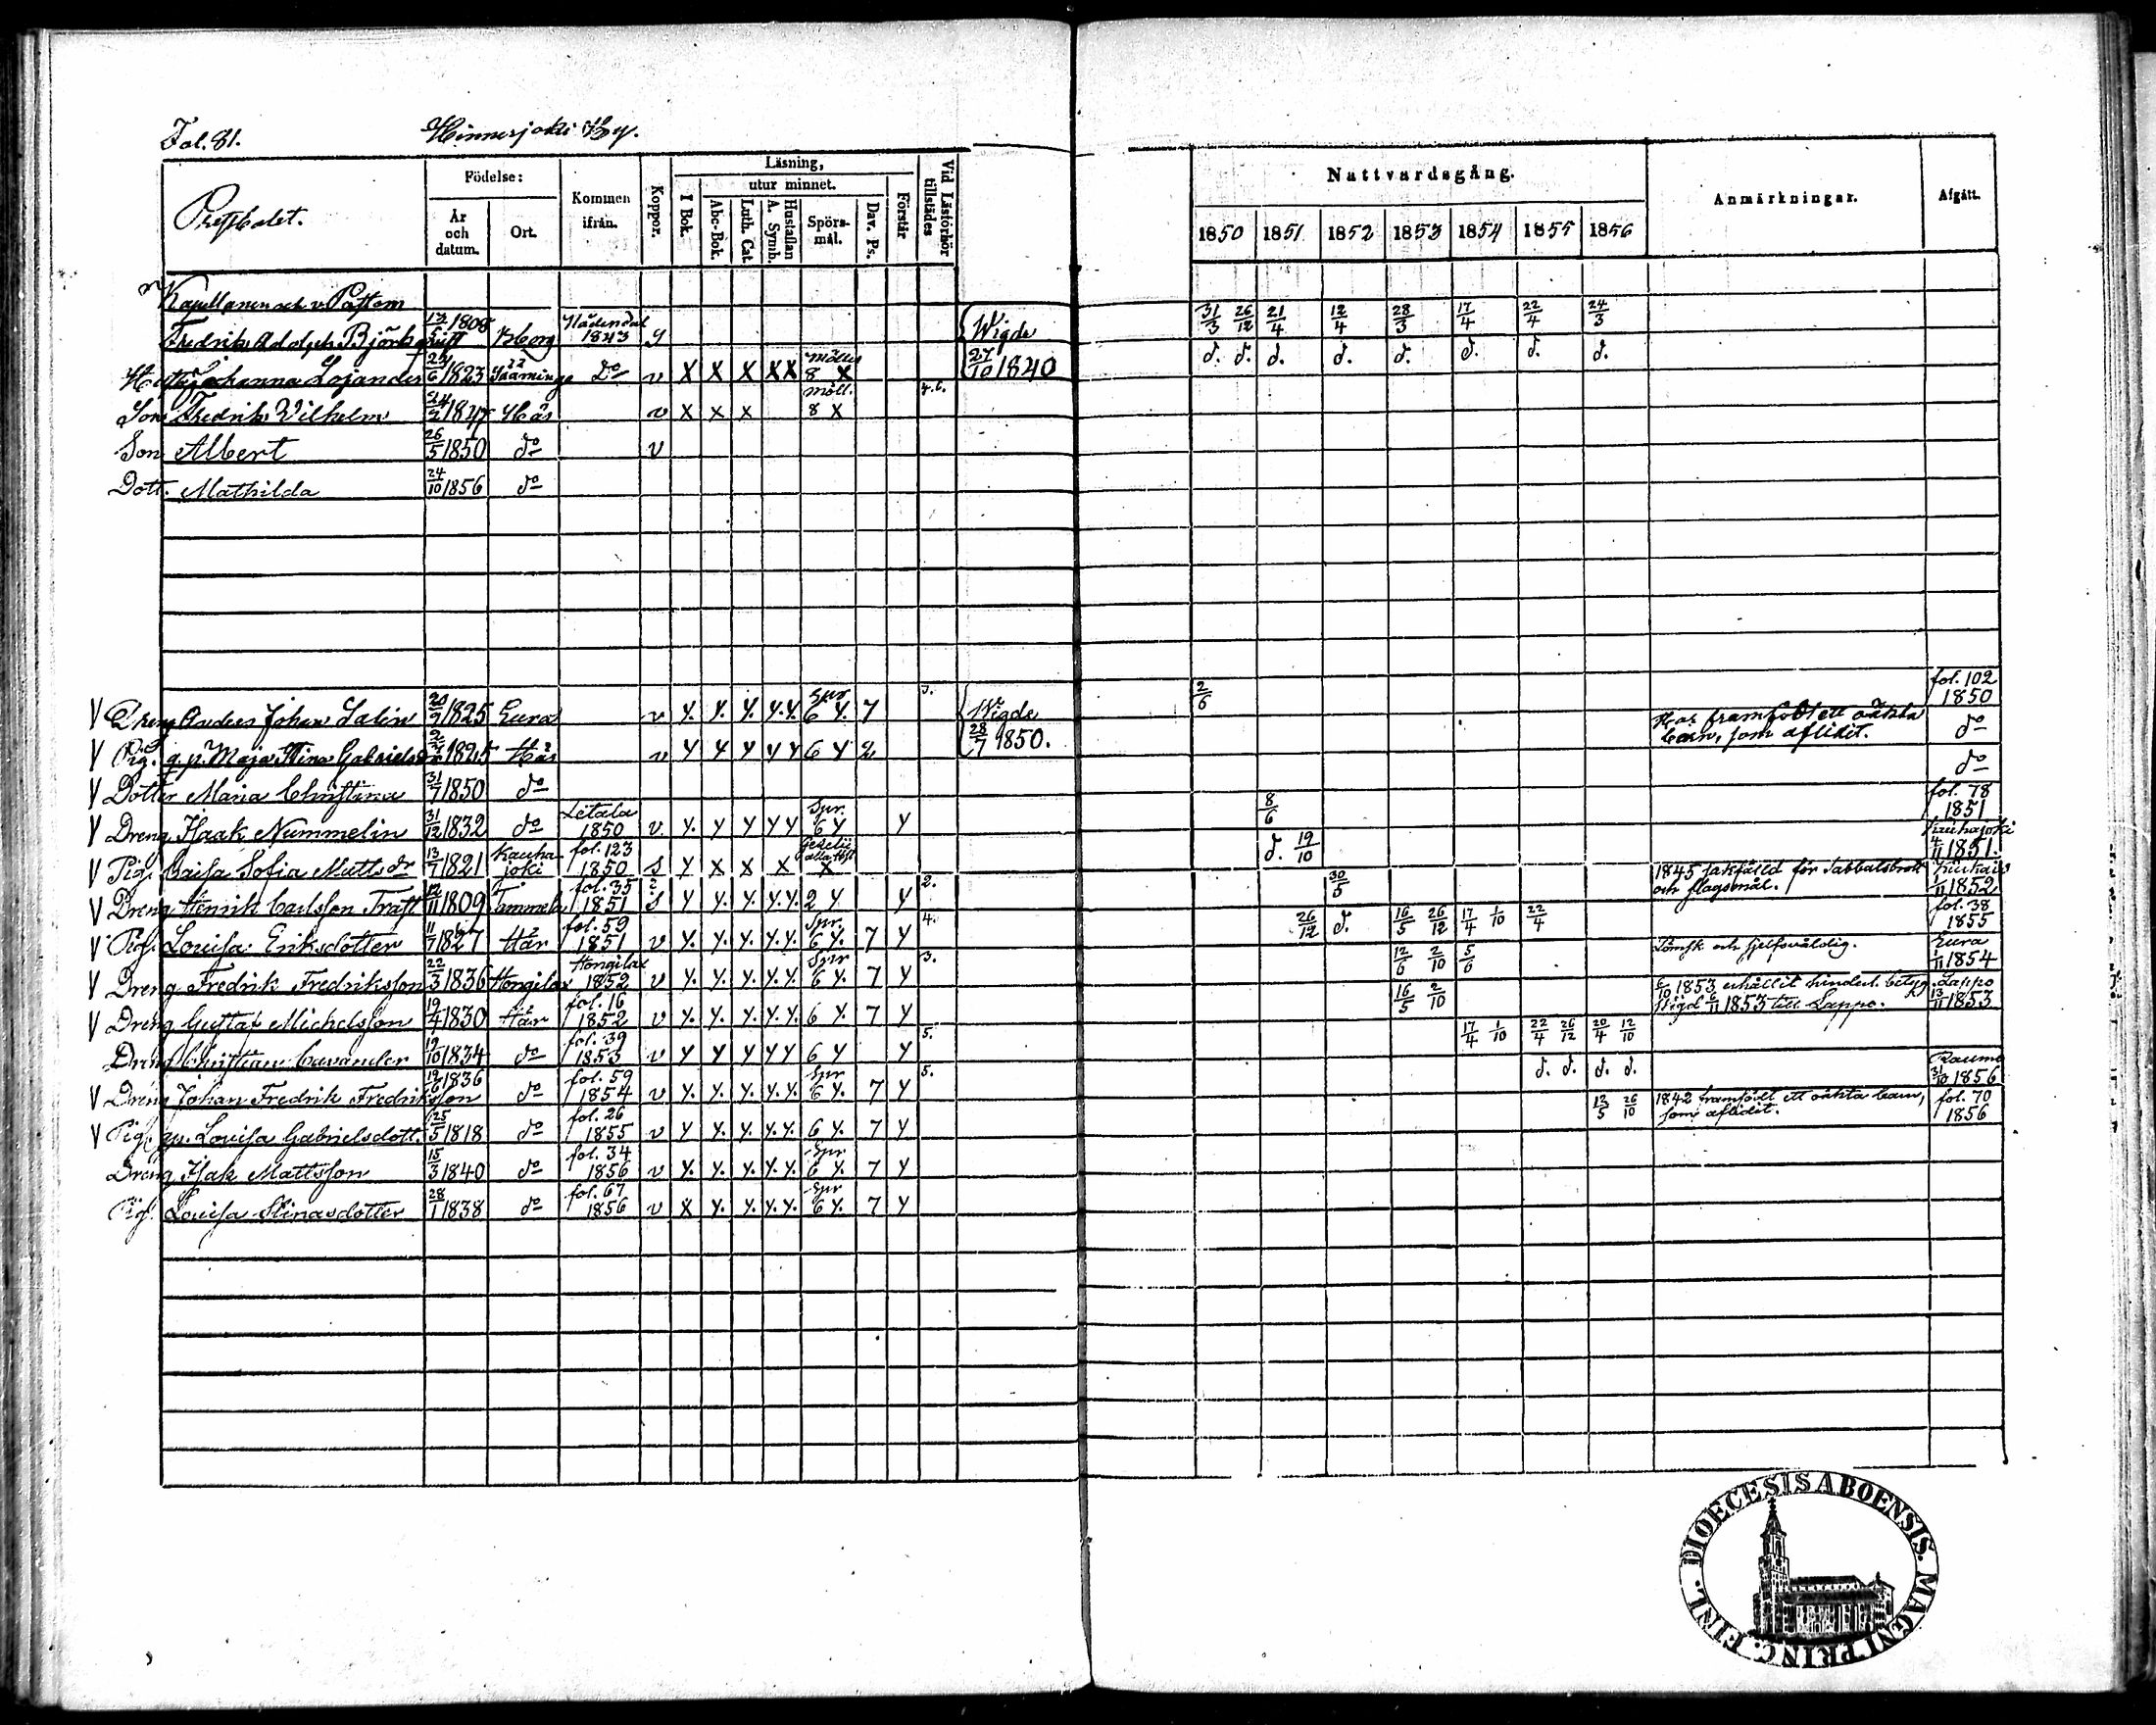 Fol. 81.
Hinnerjoki By.
Prestbolet.
Födelse:
År och datum.
Ort.
Kommen ifrån.
Koppor.
Läsning,
I Bok.
utur minnet.
Abc-Bok.
Luth. Cat.
A. Symb. Hustaflan
Spörs-mål.
Dav. Ps.
Förstår
Vid Läsförhör tillstädes
Nattvardsgång.
1850 1851 1852 1853 1854 1855 1856
Anmärkningar.
Afgått.
Kapellanen och v. Pastorn
Fredrik Adolph Björkqvist 1808 Nådendal 1843 Wigde 31/3 26/12 21/4 12/4 28/3 17/4 22/4 24/3
Johanna Lojander 1823 Do v X X X X X 8 X 27/10 1840 d. d. d. d. d. d. d. d.
Son Fredrik Vilhelm Här v X X X 8 X
Son Albert 26/5 1850 do v
Dott. Mathilda 24/10 1856 do
V Dreng Anders Johan Salin 1825 Eura v y. y. y. y. y. 6 y. 7 3. Wigde 2/6 fol. 102 1850
V Pig. Maja Stina Gabrielsdr 1825 Här v y y y y y 6 y 2 28/7 1850. Har framfödt ett oäkta barn, som aflidit. do
V Dotter Maria Christina 31/7 1850 do do
V Dreng Isaak Nummelin 31/12 1832 do Letala 1850 v. y. y y y y Spr. 6 y y 8/6 fol. 78 1851
V Pig. Caisa Sofia Mattsdr 13/7 1821 Kauhajoki fol. 123 1850 s y X X X X d. 19/10 Kauhajoki 1851.
V Dreng Henrik Carlsson Traft 1809 Tammela fol. 35 1851 s y y. y. y. y. 2 y y 2. 30/5 1845 sakfälld för Sabbatsbrott och slagsmål. 1852
V Pig. Lovisa Eriksdotter 11/7 1827 Här fol. 59 1851 v y. y. y. y. y. Spr. 6 y. 7 y 4. 26/12 d. 16/5 26/12 17/4 1/10 22/4 fol. 38 1855
V Dreng Fredrik Fredriksson 22/3 1836 Hongilax Hongilax 1852 v y. y. y. y. y. Spr 6 y. 7 y 3. 12/6 2/10 5/6 och sjelfsvåldig. Eura 1854
V Dreng Gustaf Michelsson 19/4 1830 Här fol. 16 1852 v y. y. y. y. y. 6 y. 7 y 16/5 2/10 1853 erhållit hinderl. betyg. 1853 till Lappo. Lappo 13/11 1853
Dreng Christian Cuvander 19/10 1834 do fol. 39 1853 v y y y y y 6 y y 5. 17/4 1/10 22/4 26/12 20/4 12/10
V Dreng Johan Fredrik Fredriksson 1836 do fol. 59 1854 v y. y. y. y. y. Spr 6 y. 7 y 5. d. d. d. d. Raumo 31/10 1856
V Pig. Lovisa Gabrielsdott. 25/5 1818 do fol. 26 1855 v y y. y. y. y. 6 y. 7 y 26/10 1842 framfödt ett oäkta barn, som aflidit. fol. 70 1856
Dreng Isak Mattsson 15/3 1840 do fol. 34 1856 v y. y. y. y. y. Spr 6 y. 7 y
Pig. Lovisa Stinasdotter 28/1 1838 do fol. 67 1856 v X y. y. y. y. Spr 6 y. 7 y
DIOECESIS ABOENSIS. MAGNI PRINC. FINL.